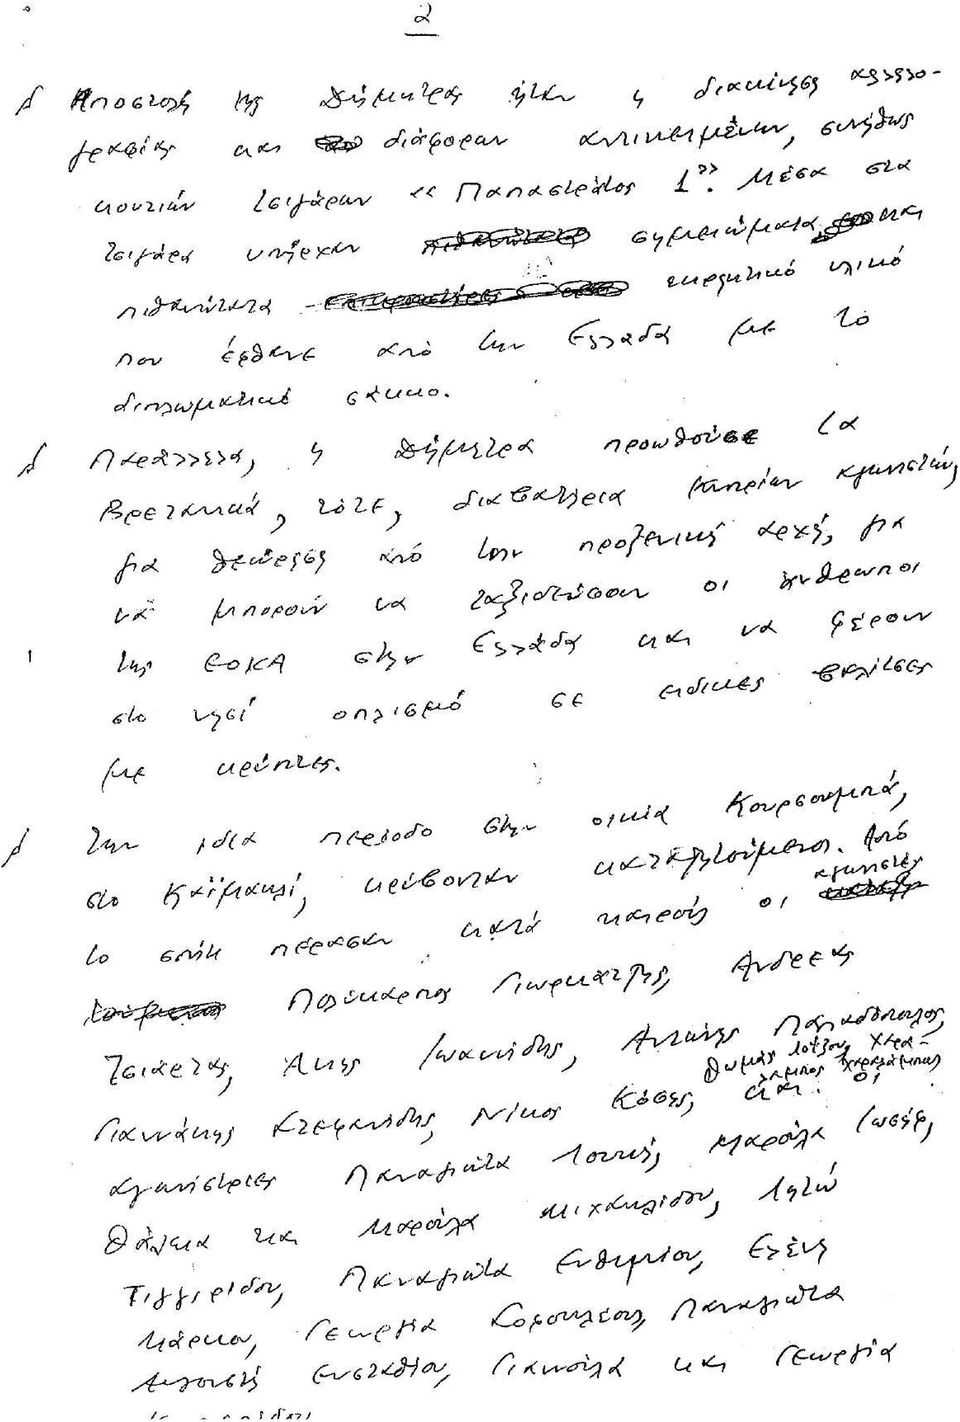 2
Αποστολή της Δήμητρας ήταν η διακίνηση αλληλο-
γραφίας και διάφορων αντικειμένων, συνήθως
κουτιών τσιγάρων «Παπαστράτος 1». Μέσα στα
τσιγάρα υπήρχαν σημειώματα και
πιθανώτατα εκρηκτικό υλικό
που έφθανε από την Ελλάδα με το
διπλωματικό σάκκο.
Παράλληλα, η Δήμητρα προωθούσε τα
Βρετανικά, τότε, διαβατήρια μερικών αγωνιστών,
για θεώρηση από την προξενική αρχή, για
να μπορούν να ταξιδεύσουν οι άνθρωποι
της ΕΟΚΑ στην Ελλάδα και να φέρουν
στο νησί οπλισμό σε ειδικές βαλίτσες
με κρύπτες.
Την ίδια περίοδο στην οικία Κουρσουμπά,
στο Καϊμακλί, κρύβονταν καταζητούμενοι. Από
το σπίτι πέρασαν κατά καιρούς οι αγωνιστές
Πολύκαρπος Γιωρκάτζης, Ανδρέας
Τσιάρτας, Άκης Ιωαννίδης, Αντώνης Παπαδόπουλος,
Θωμάς Λοΐζου, Χαρά-
λαμπος Χαραλάμπους
Γιαννάκης Στεφανίδης, Νίκος Κόσης, και οι
αγωνίστριες Παναγιώτα Λοϊζή, Μαρούλα Ιωσήφ,
Θάλεια και Μαρούλα Μιχαηλίδου, Λητώ
Τιγγιρίδου, Παναγιώτα Ευθυμίου, Ελένη
Μάρκου, Γεωργία Παναγιώτα
Αυγουστή Ευσταθίου, Γιαννούλα και Γεωργία